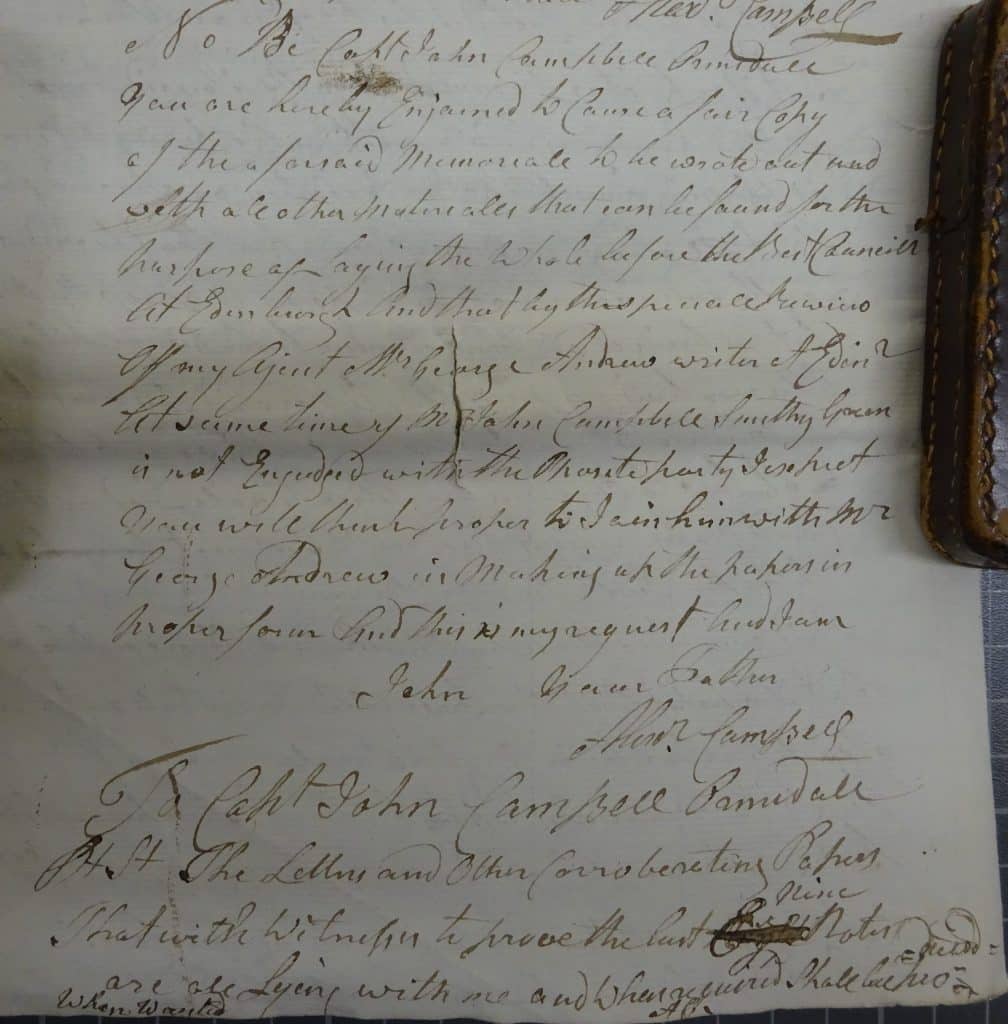 Alexr. Campbell
No Be Capt John Campbell Ormidale
You are hereby Enjoined to Cause a fair Copy
of the aforsaid Memoriale to be wrote out and
with all other Materialls that can be found for the
purpose of Laying the Whole before the Best Council
At Edinburgh And that by the speceall Revieu
Off my Agent Mr George Andrew writer At Edinr
At same time if Mr John Campbell Smithy Green
is not Engadged with the Oposite party I expect
You will think proper to Join him with Mr
George Andrew in Making up the papers in
proper form And this is my request And I am
John Your Father
Alexr Campbell
To Capt John Campbell Ormidale
The Letters and Other Corroberating Papers
nine
That with Witnesses to prove the last Notes
are all Lying with me and When required Shall be pro=
=duced=
When Wanted
AC.